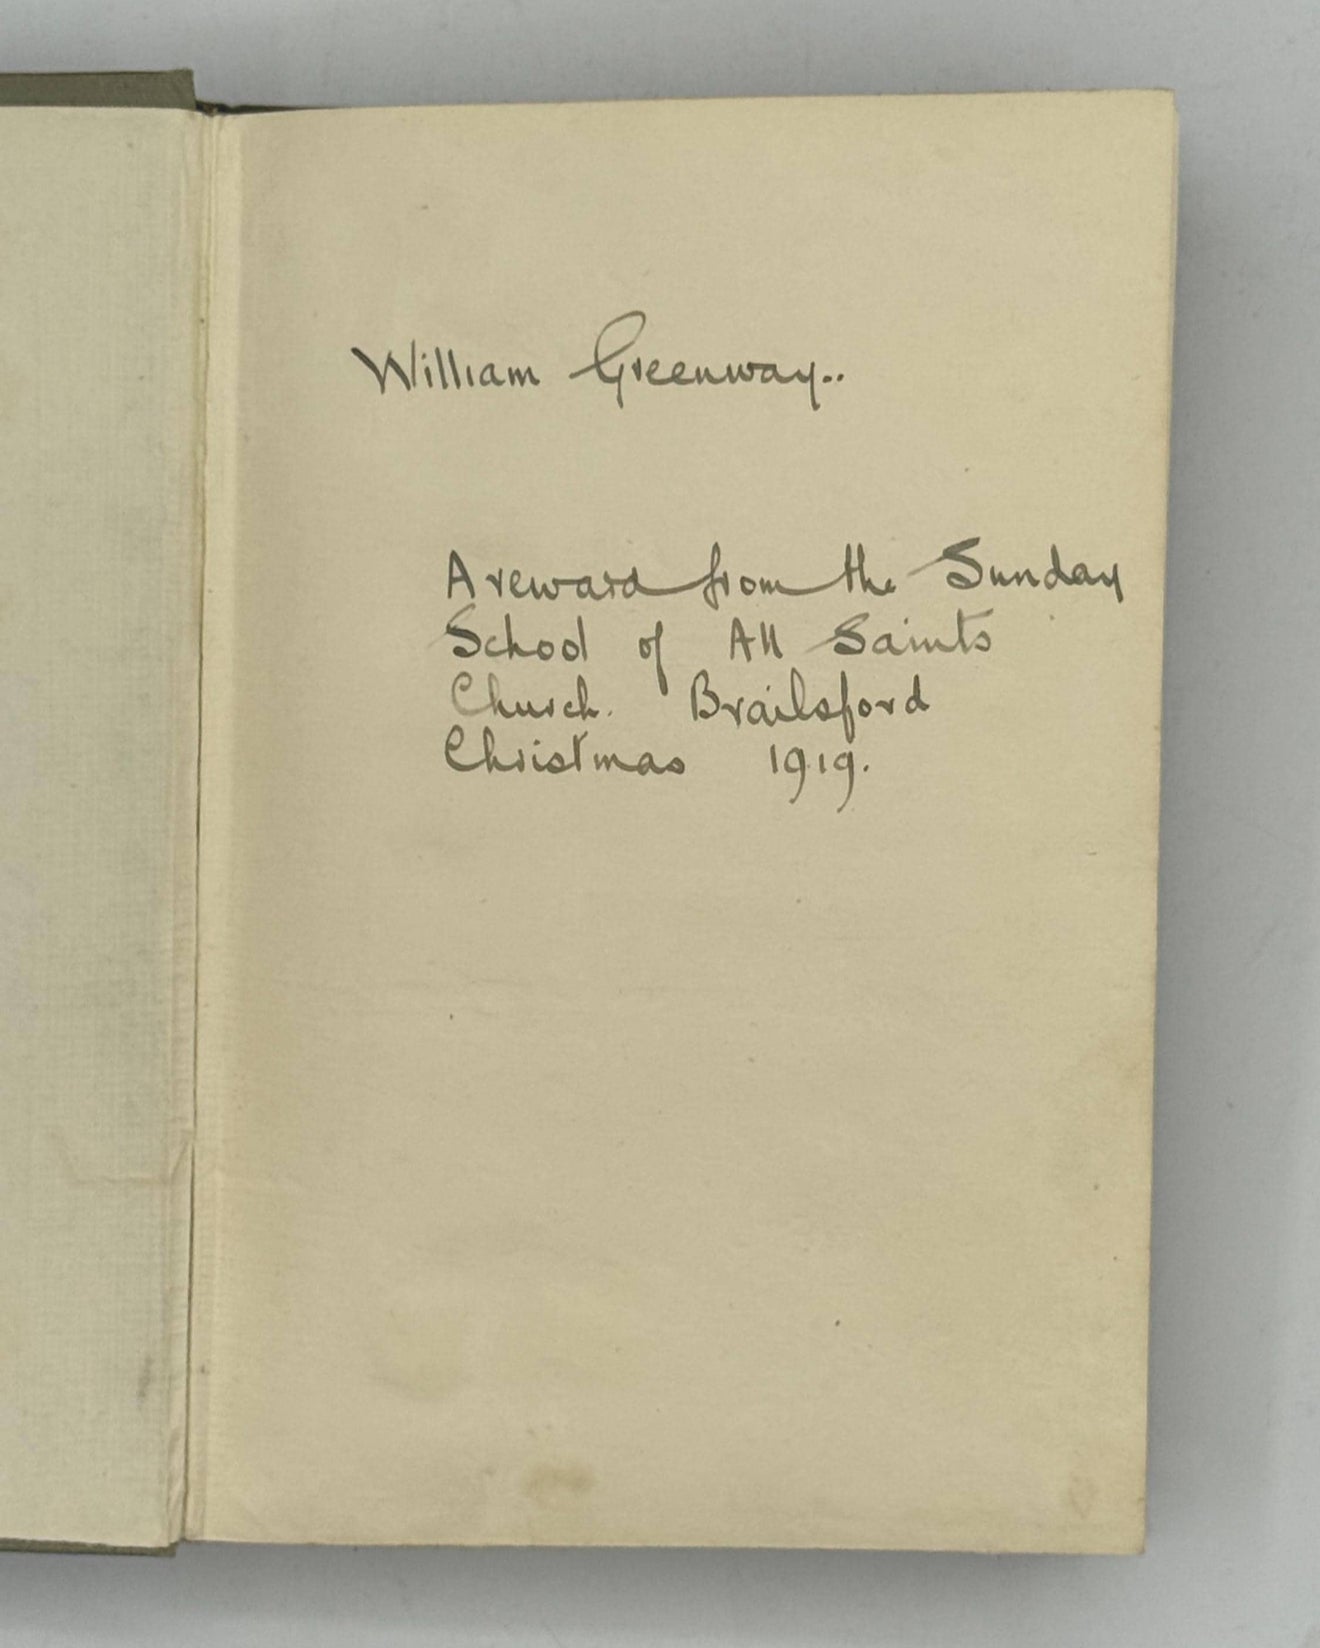 William Greenway..
A reward from the Sunday
School of All Saints
Church. Brailsford
Christmas 1919.